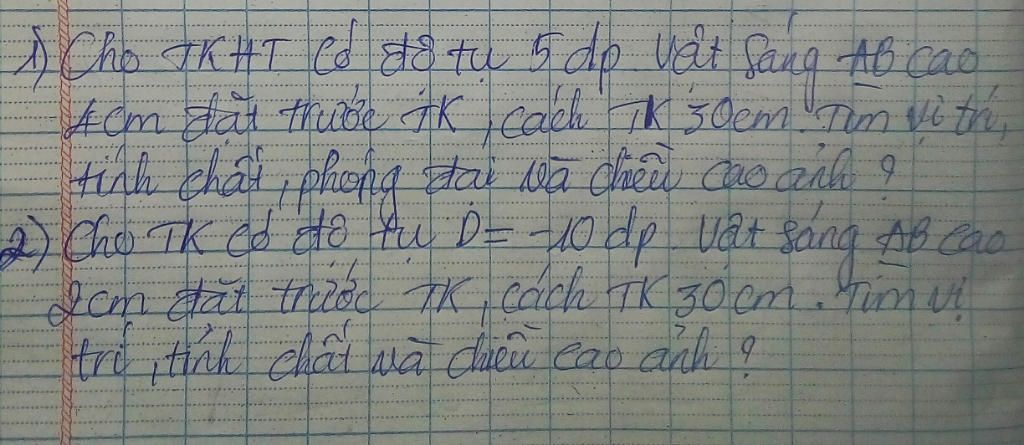 1) Cho TKHT có độ tụ 5 dp vật sáng AB cao
4cm đặt trước TK, cách TK 30cm. Tìm vị trí,
tính chất, phóng đại và chiều cao ảnh ?
2) Cho TK có độ tụ D = -10 dp. Vật sáng AB cao
2cm đặt trước TK, cách TK 30 cm. Tìm vị
trí, tính chất và chiều cao ảnh ?